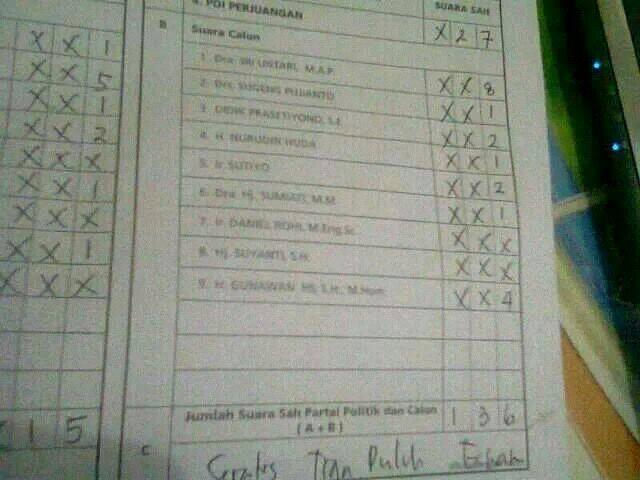 4. PDI PERJUANGAN
SUARA SAH
X 2 7
B Suara Calon
1. Dra. SRI UNTARI, M.A.P. X X 8
2. Drs. SUGENG PUJIANTO X X 1
3. DIDIK PRASETIYONO, S.E. X X 2
4. H. NURUDIN HUDA X X 1
5. Ir. SUTIYO X X 2
6. Dra. Hj. SUMIATI, M.M. X X 1
7. Ir. DANIEL ROHI, M.Eng.Sc. X X X
8. Hj. SUYANTI, S.H. X X X
9. H. GUNAWAN HS, S.H., M.Hum. X X 4
Jumlah Suara Sah Partai Politik dan Calon
( A + B ) 1 3 6
C Seratus Tiga Puluh Enam
X X 1
X X 5
X X 1
X X 2
X X X
X X 1
X X X
X X 1
X X X
1 5